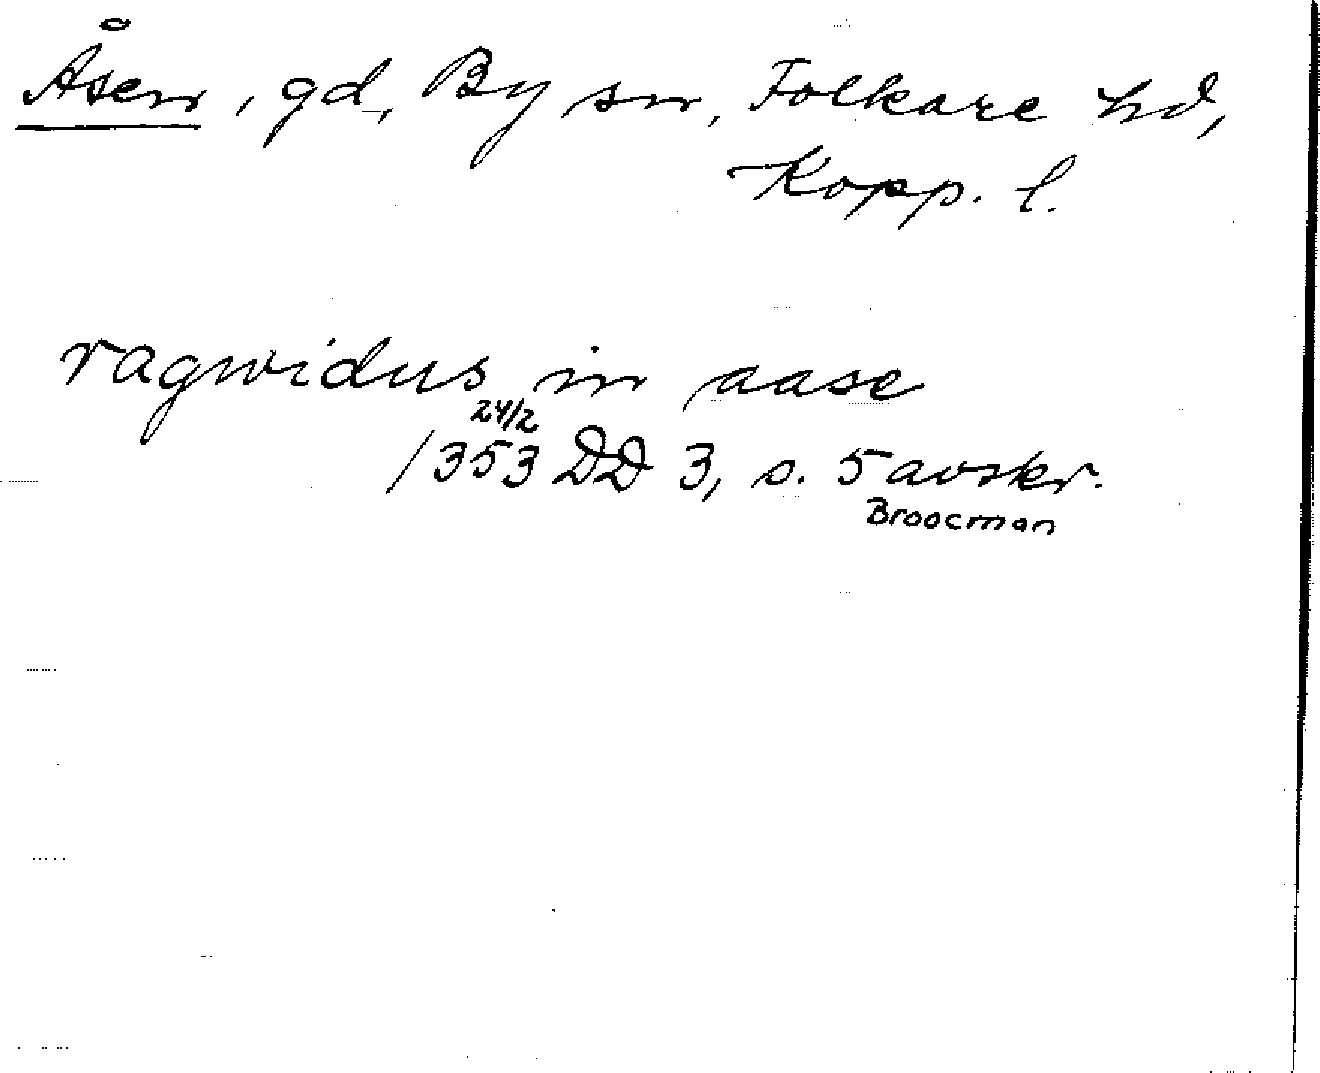 Åsen, gd, By sn, Folkare hd,
Kopp. l.
ragwidus in aase
24/2
1353 DD 3, s. 5 avskr.
Broocman